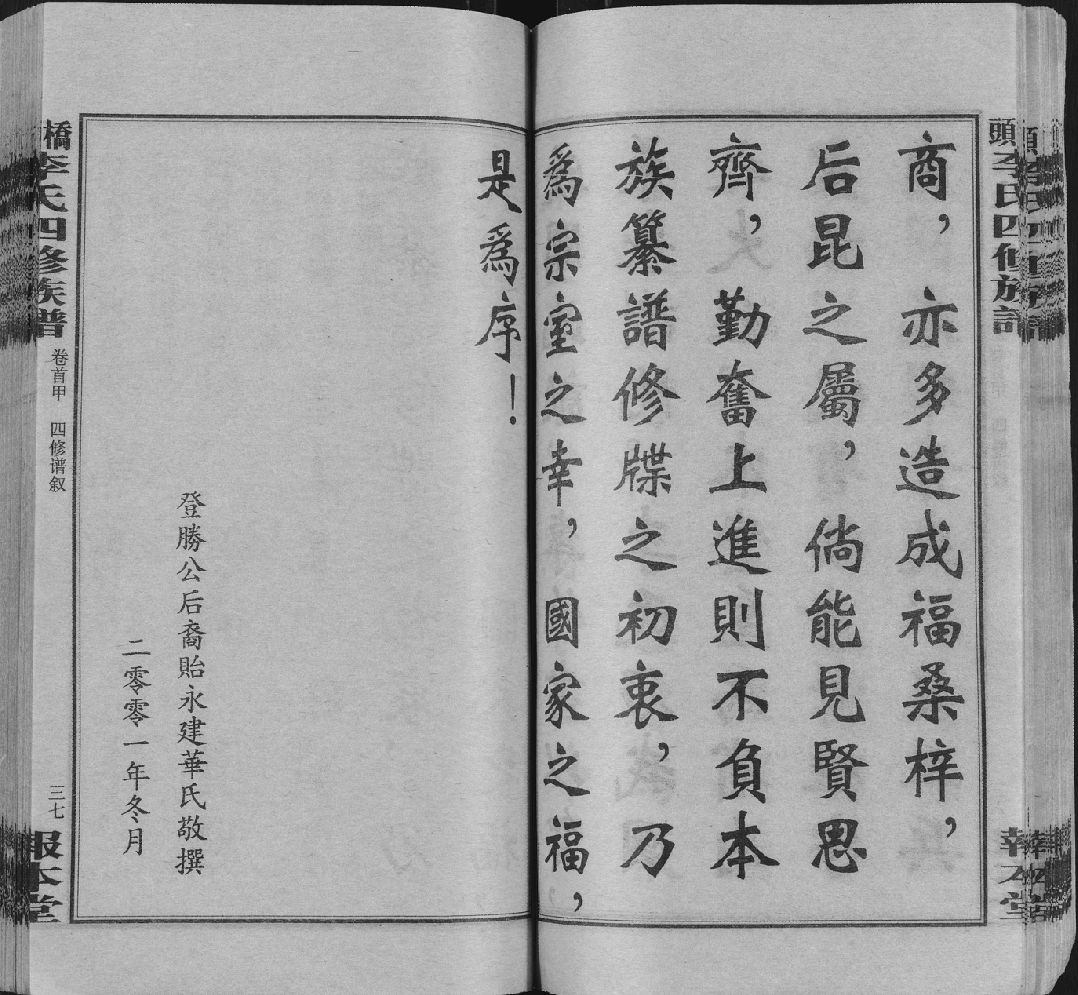 商，亦多造成福桑梓，
后昆之屬，倘能見賢思
齊，勤奮上進則不負本
族纂譜修牒之初衷，乃
為宗室之幸，國家之福，
是為序！
登勝公后裔貽永建華氏敬撰
二零零一年冬月
橋李氏四修族譜
卷首甲　四修谱叙
三七
報本堂